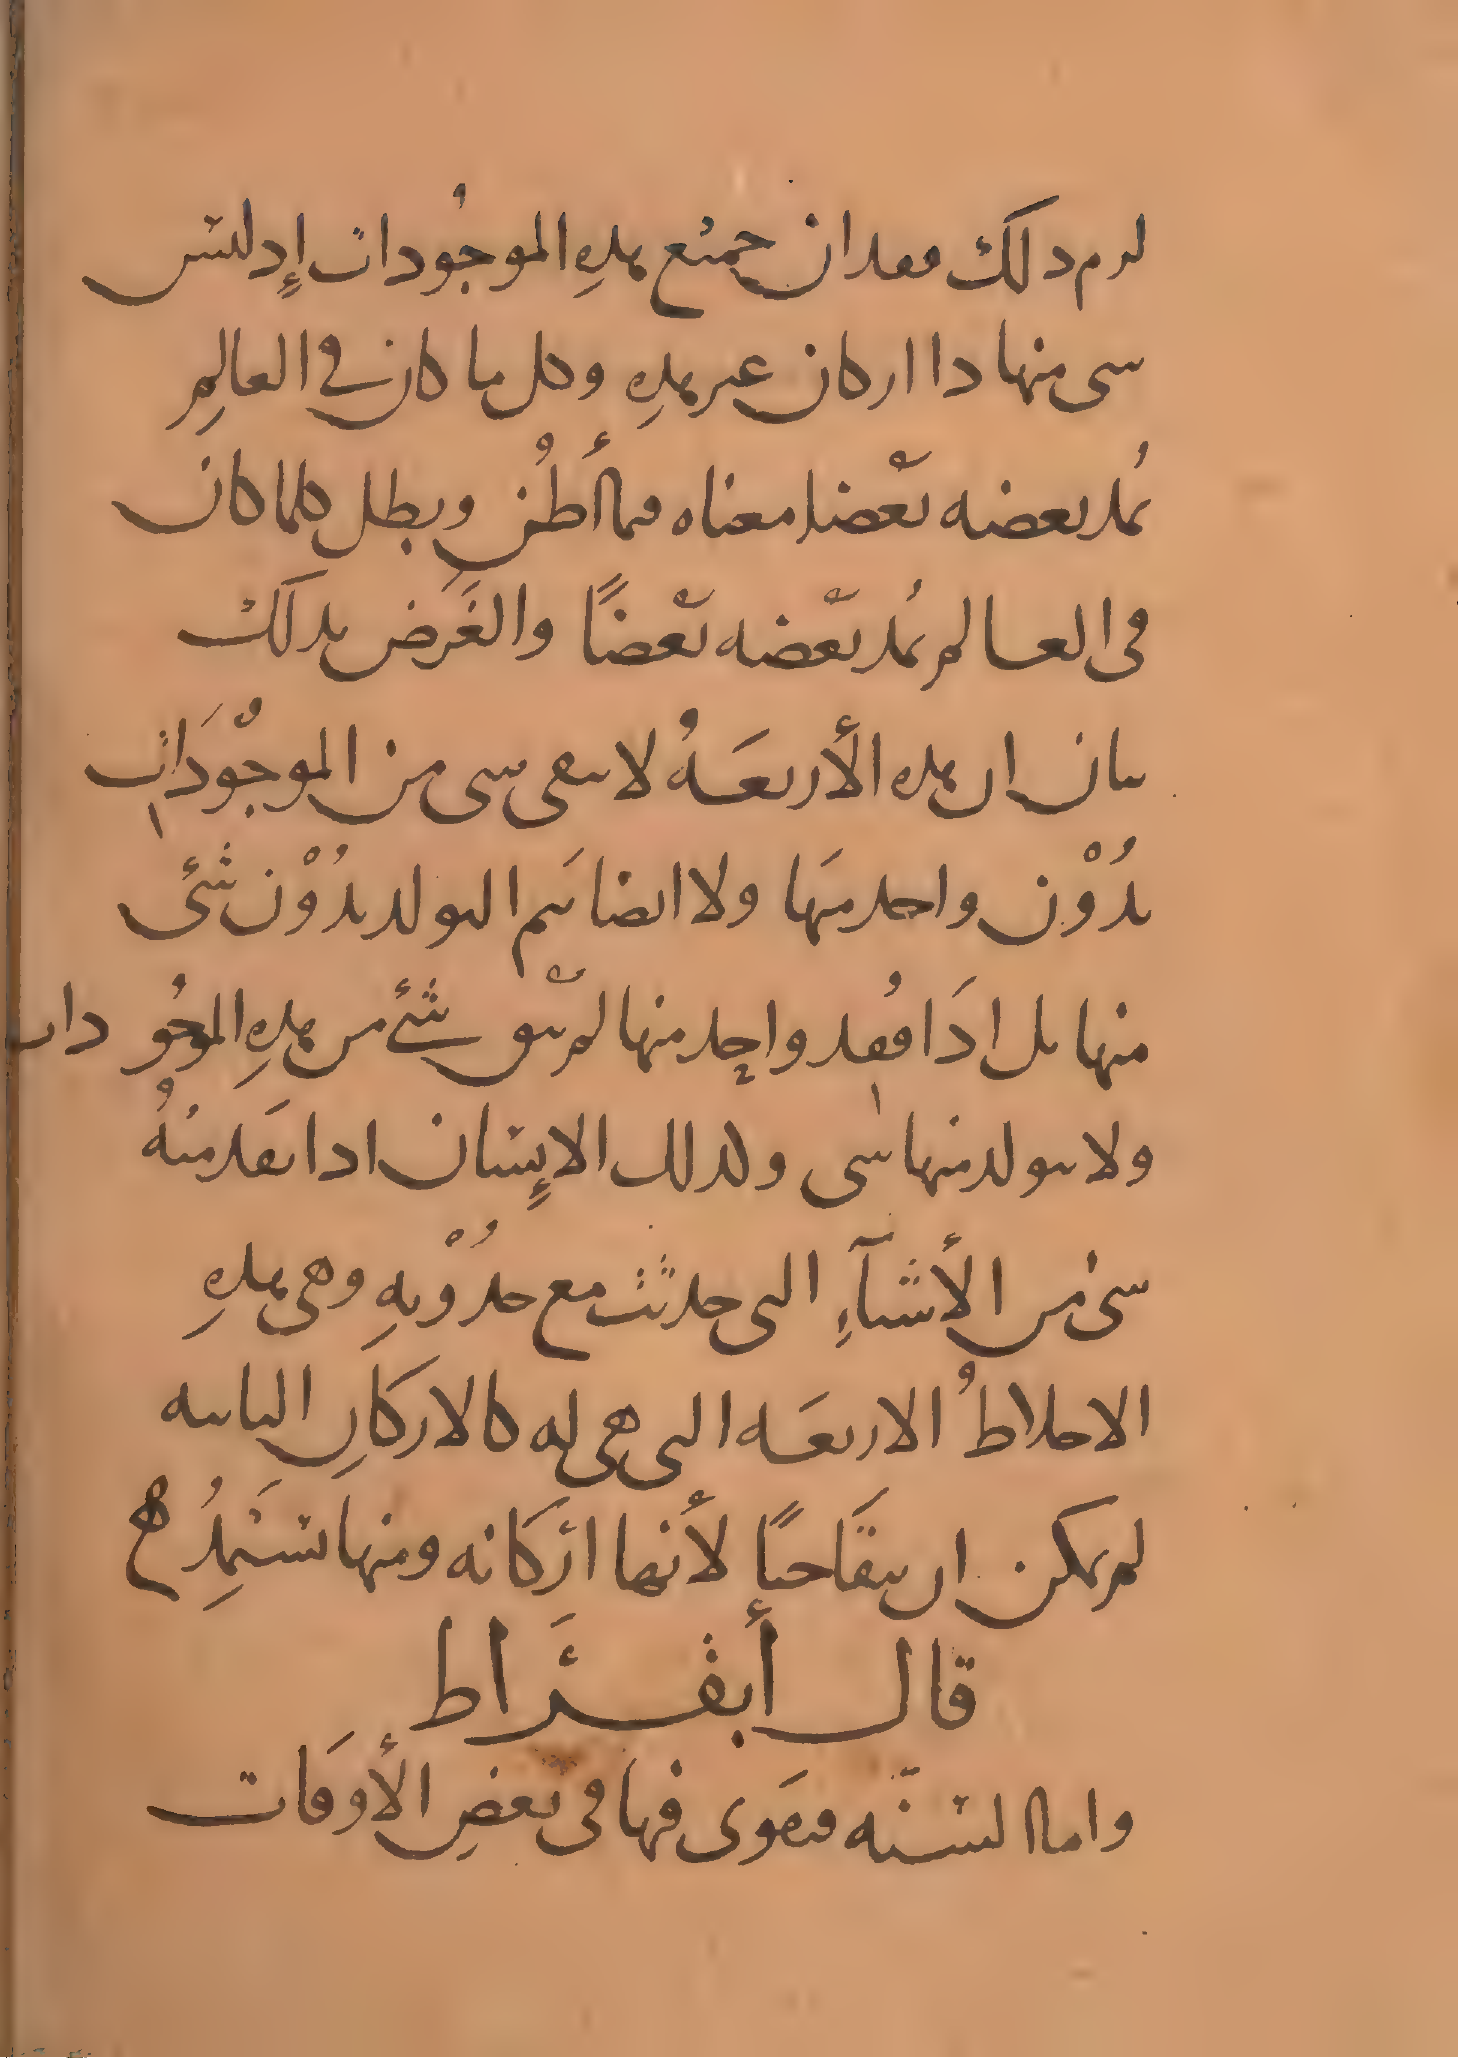 لزم ذلك فقدان جميع هذهِ الموجُودات إِذ ليس
شى منها ذا اركان غير هذهِ وكل ما كان في العالمِ
يُمد بعضه بعْضا معناه فيما أَظُن ويبطل كلما كان
فى العالم يُمد بعْضه بعْضًا والغَرَض بذلك
بيان ان هذه الأربعَةُ لا يبقى شى من الموجُودَات
بدُوْن واحد منها ولا ايضا يتم التولد بدُوْن شئ
منها بل اذَا فُقد واحِد منها لم يبْق شئ من هذهِ الموجُودات
ولا يتولد منها شى وكذلك الإِنسان اذا فقَد منهُ
شى من الأشيآءِ التى حدثت مع حدُوْثهِ وهى هذهِ
الاخلاطُ الاربعَه التى هى له كالاركانِ الثانيه
لم يمكن ان يبقَا حيًا لأنها اركَانه ومنها يستَمِدُ ه
قال أبقرَاط
واما السنّه فيقوَى فيها فى بعضِ الأوقَات